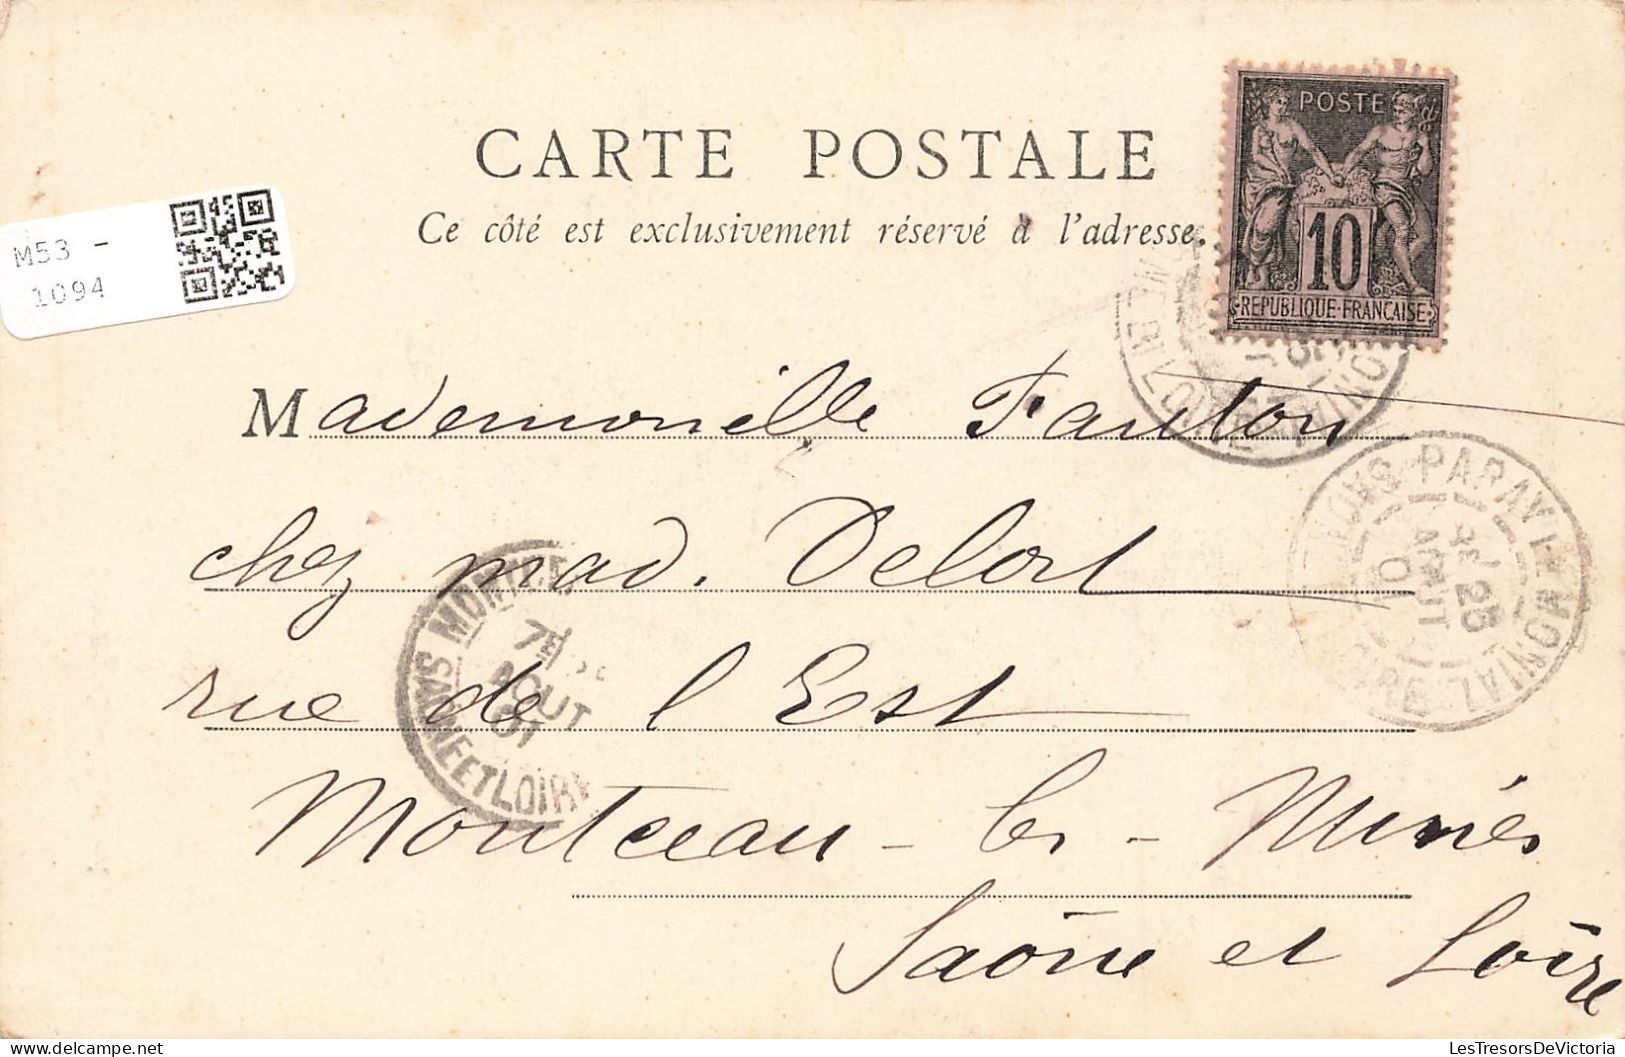 CARTE POSTALE
Ce côté est exclusivement réservé à l'adresse.
POSTE
10
REPUBLIQUE·FRANÇAISE
M53 -
1094
Mademoiselle Fauton
chez mad. Delort
rue de l Est
Montceau - les - Mines
Saône et Loire
PARAY-LE-MONIAL
25
AOUT
01
7E
AOUT
01
SAONE ET LOIRE
LesTresorsDeVictoria